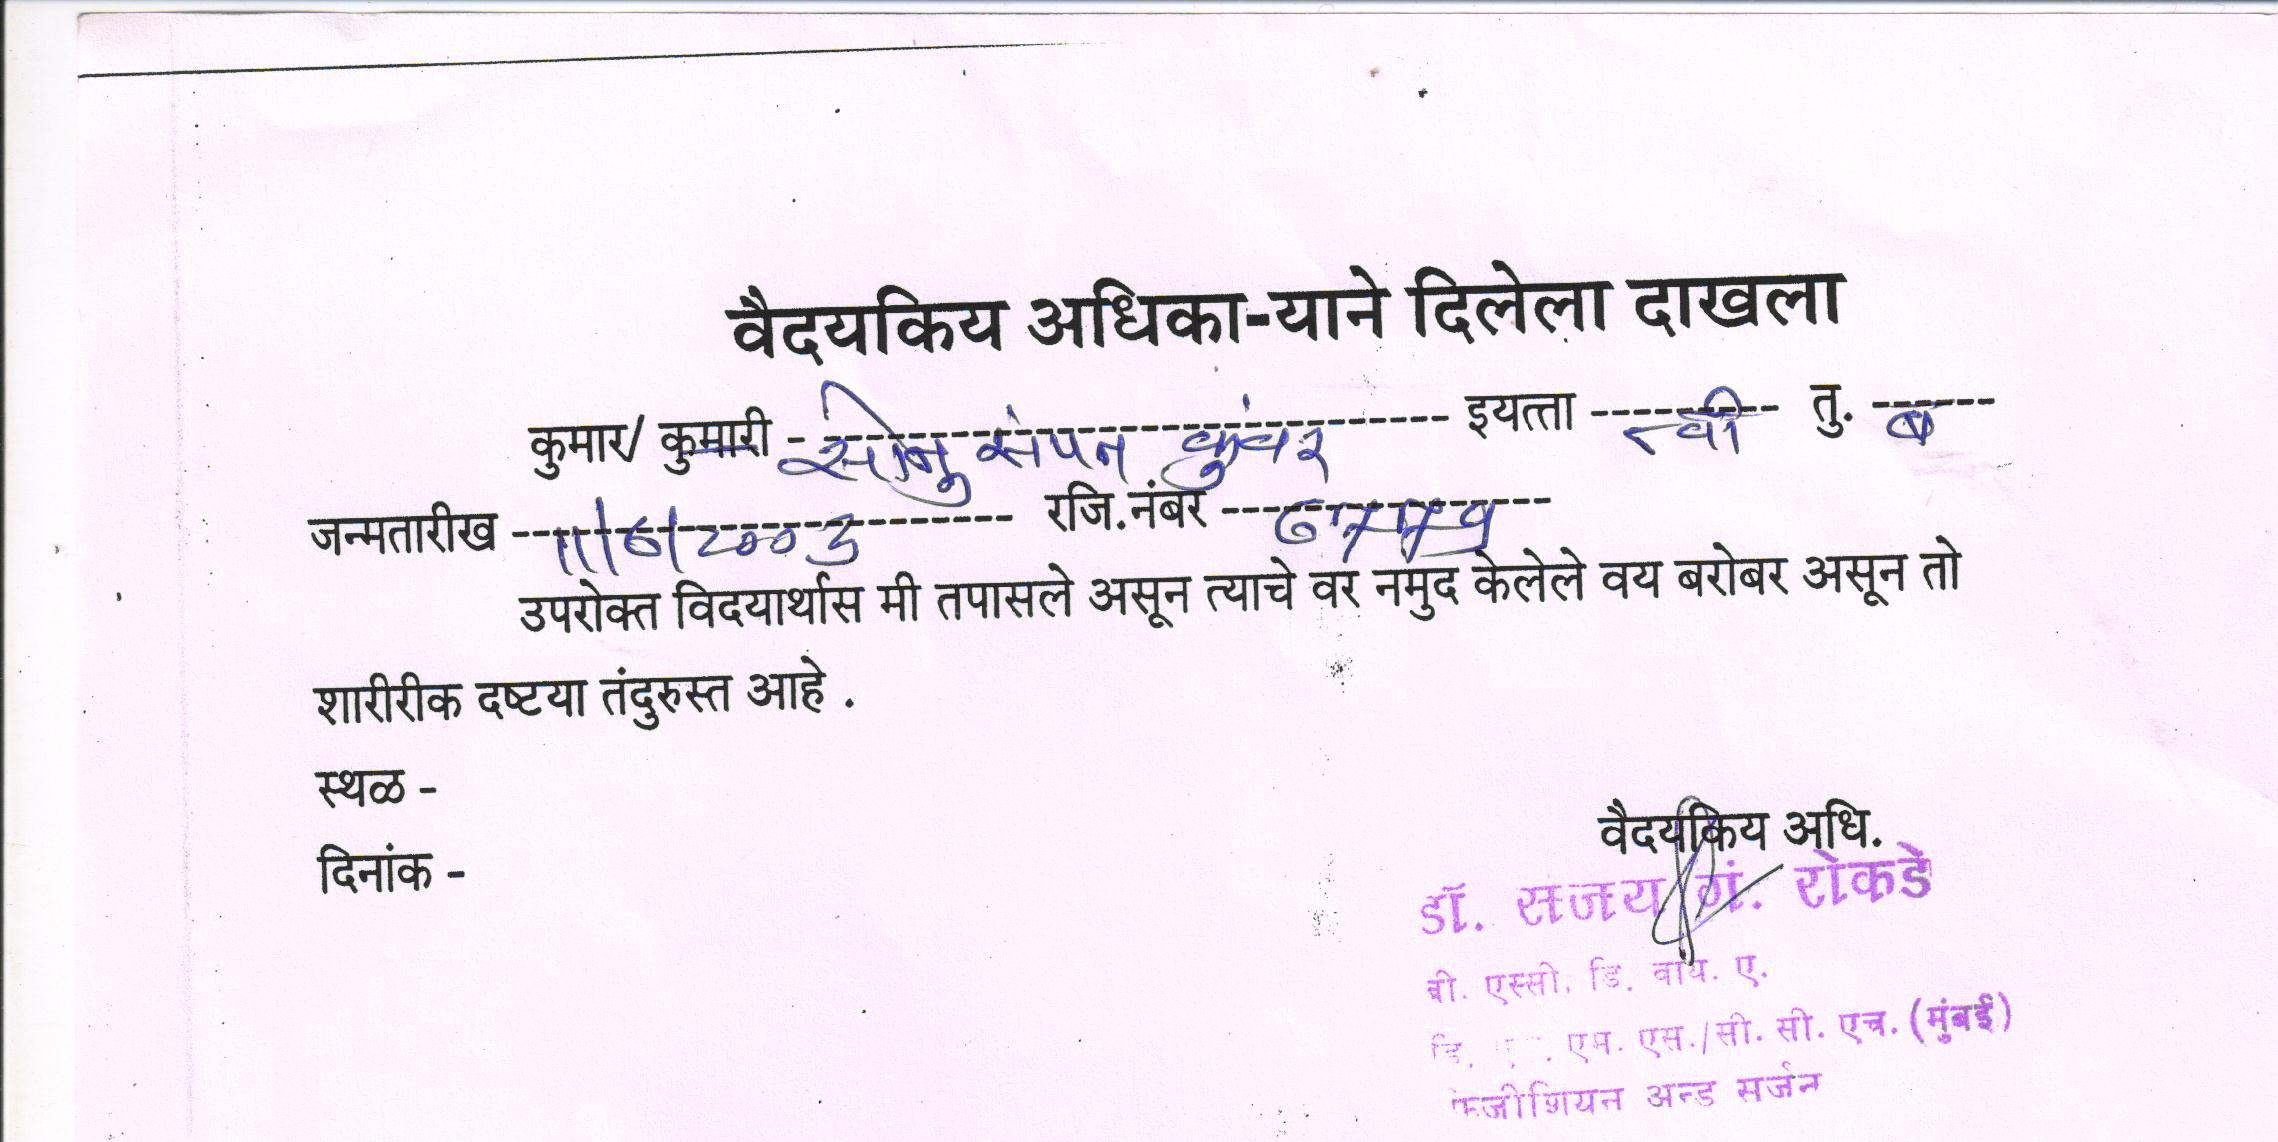 वैदयकिय अधिका-याने दिलेला दाखला
कुमार/ कुमारी - सोनु संपन कुंवर इयत्ता वी तु. ब
जन्मतारीख 11/6/2003 रजि.नंबर
उपरोक्त विदयार्थास मी तपासले असून त्याचे वर नमुद केलेले वय बरोबर असून तो
शारीरीक दष्टया तंदुरुस्त आहे .
स्थळ -
दिनांक -
वैदयकिय अधि.
डॉ. सजय गं. रोकडे
बी. एस्सी. डि. वाय. ए.
डि. एम. एस./सी. सी. एच. (मुंबई)
फिजीशियन अन्ड सर्जन